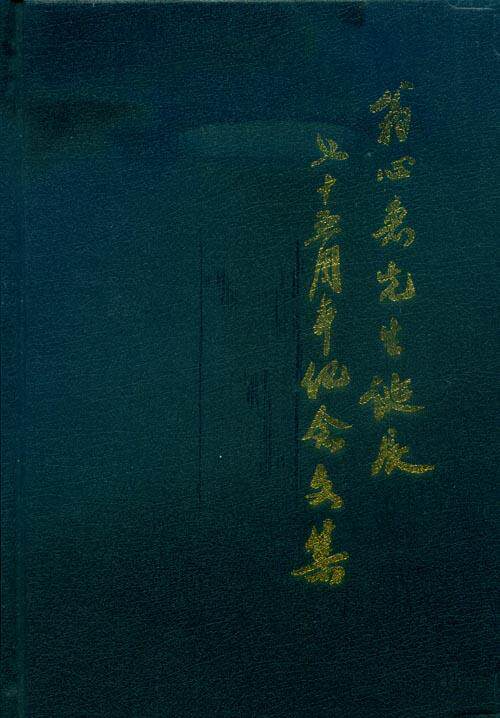 翁心惠先生诞辰
九十五周年纪念文集